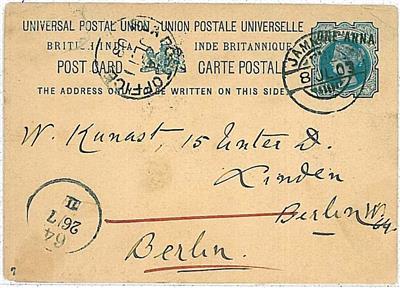 UNIVERSAL POSTAL UNION UNION POSTALE UNIVERSELLE
BRITISH INDIA INDE BRITANNIQUE
POST CARD CARTE POSTALE
THE ADDRESS ONLY TO BE WRITTEN ON THIS SIDE
ANNA
8 JL 03
OFFICE
W. Kunast, 15 Unter D.
Linden
Berlin W.
64.
Berlin.
64
26/7
II